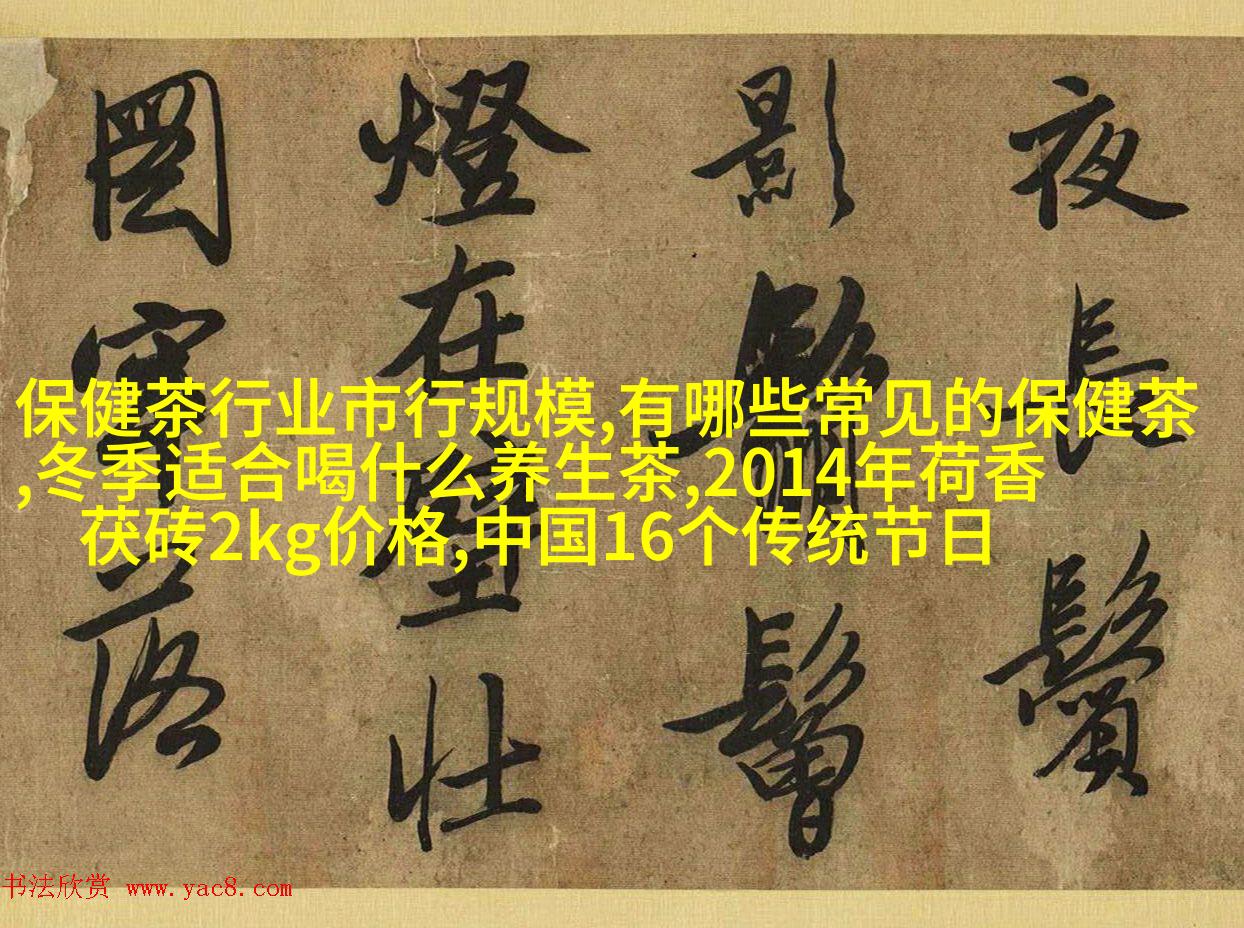 夜長鬢
影鬅鬙
燈在壁壯
圖寥落
保健茶行业市行规模,有哪些常见的保健茶
,冬季适合喝什么养生茶,2014年荷香
茯砖2kg价格,中国16个传统节日
书法欣赏 www.yac8.com